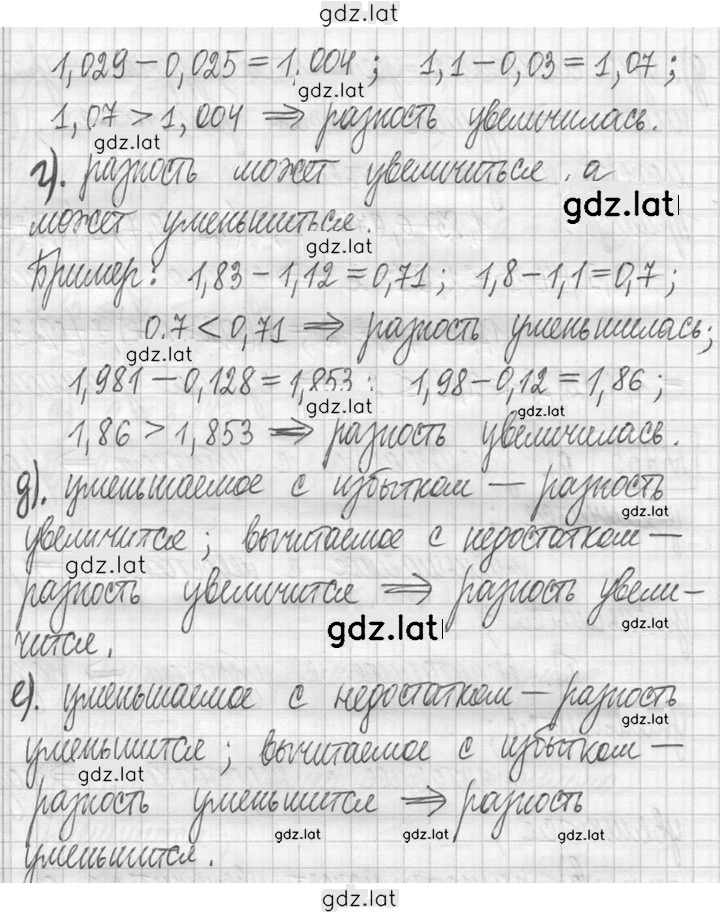 gdz.lat
1,029 − 0,025 = 1,004; 1,1 − 0,03 = 1,07;
gdz.lat
1,07 > 1,004 ⟹ разность увеличилась.
gdz.lat
г). разность может увеличиться, а
gdz.lat
может уменьшиться.
gdz.lat
Пример: 1,83 − 1,12 = 0,71; 1,8 − 1,1 = 0,7;
0,7 < 0,71 ⟹ разность уменьшилась;
gdz.lat
1,981 − 0,128 = 1,853; 1,98 − 0,12 = 1,86;
gdz.lat gdz.lat
1,86 > 1,853 ⟹ разность увеличилась.
д). уменьшаемое с избытком — разность
gdz.lat
увеличится; вычитаемое с недостатком —
gdz.lat
разность увеличится ⟹ разность увели-
gdz.lat gdz.lat
чится.
е). уменьшаемое с недостатком — разность
gdz.lat
уменьшится; вычитаемое с избытком —
gdz.lat
разность уменьшится ⟹ разность
gdz.lat gdz.lat gdz.lat
уменьшится.
gdz.lat